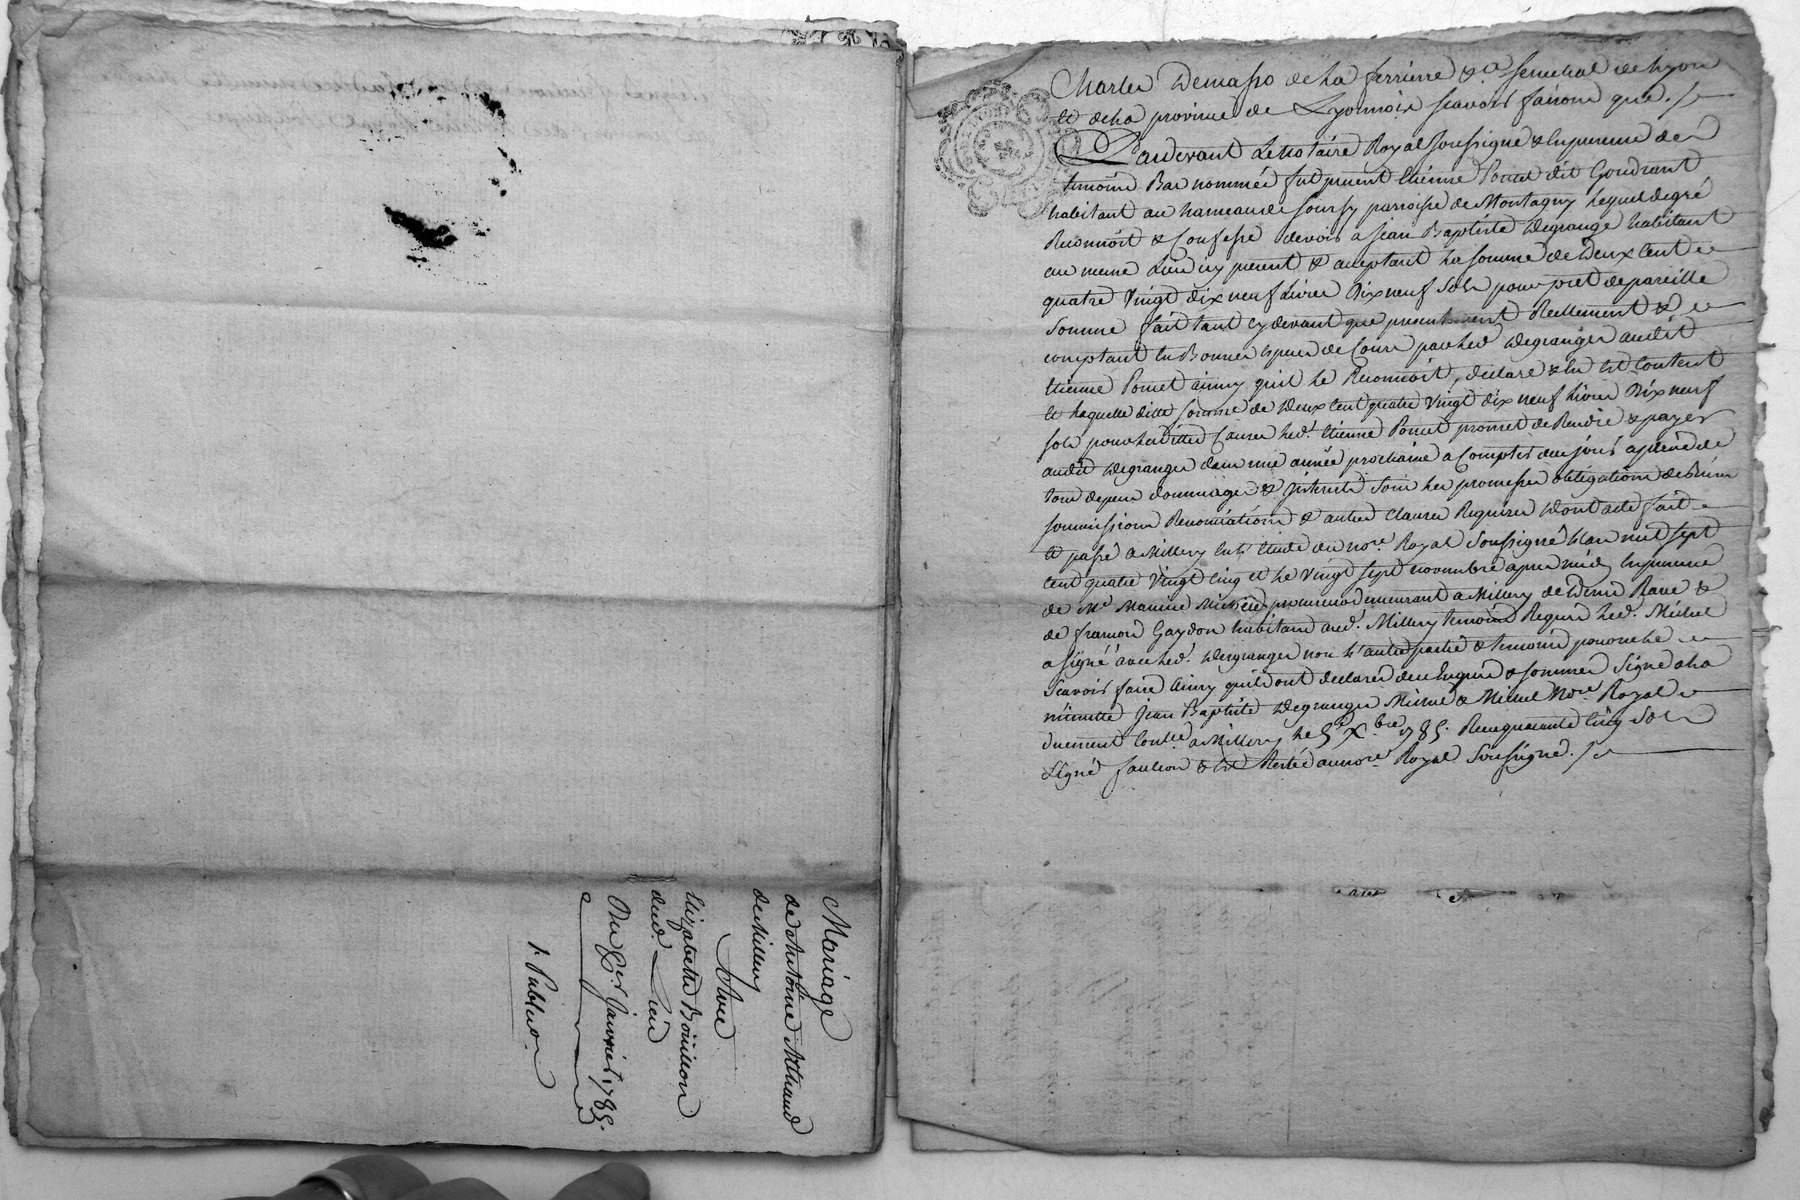 Mariage
de Antoine Athaud
de Millery
Avec
Elizabeth Boüillon
dud. Lieu
Du 8er Janvier 1785.
Charles Demasso de La ferriere &a. senechal de Lyon
et de La province de Lyonnois scavoir faisons que. /
Pardevant Le Notaire Royal soussigné & En presence des
temoins Bas nommés fut present Etienne Poncet dit Goudrant
habitant au hameau de sourzy parroisse de Montagny Lequel de gré
Reconnoit & Confesse devoir a Jean Baptiste Degrange habitant
au meme Lieu icy present & acceptant La somme de Deux Cent
quatre Vingt dix neuf Livres Dix neuf Sols pour pret de pareille
Somme fait tant cy devant que presentement Reellement &
comptant En Bonnes Especes de Cours par Led. Degranges audit
Etienne Poncet ainsy qu'il Le Reconnoit, declare & En Est Content
et Laquelle ditte Somme de Deux Cent quatre Vingt dix neuf Livres Dix neuf
sols pour Les dittes Causes Led. Etienne Poncet promet de Rendre & payer
audit Degranges dans une année prochaine a Compter de ce jour a peine de
tous depens dommages & Interets sous Les promesses obligations de Biens
soumissions Renonciations & autres Clauses Requises Dont acte fait
et passé a Millery En L'Etude du Nore. Royal Soussigné L'an mil sept
Cent quatre Vingt Cinq et Le Vingt sept novembre apres midy En presence
de Me. Maurice Michel procureur demeurant a Millery de Denis Rave &
de francois Gaydon habitans aud. Millery temoins Requis Led. Michel
a signé avec Led. Degranges non L'autre partie & temoin pour ne Le
Scavoir faire ainsy qu'ils ont declarés de ce Enquis & sommés Signé a La
minutte Jean Baptiste Degranges Michel & Michel Nore. Royal
duement Conllé. a Millery Le 5e. Xbre. 1785. Recu quarante Cinq Sols
Signé faulcon & Est Restée au nore. Royal Soussigné. /